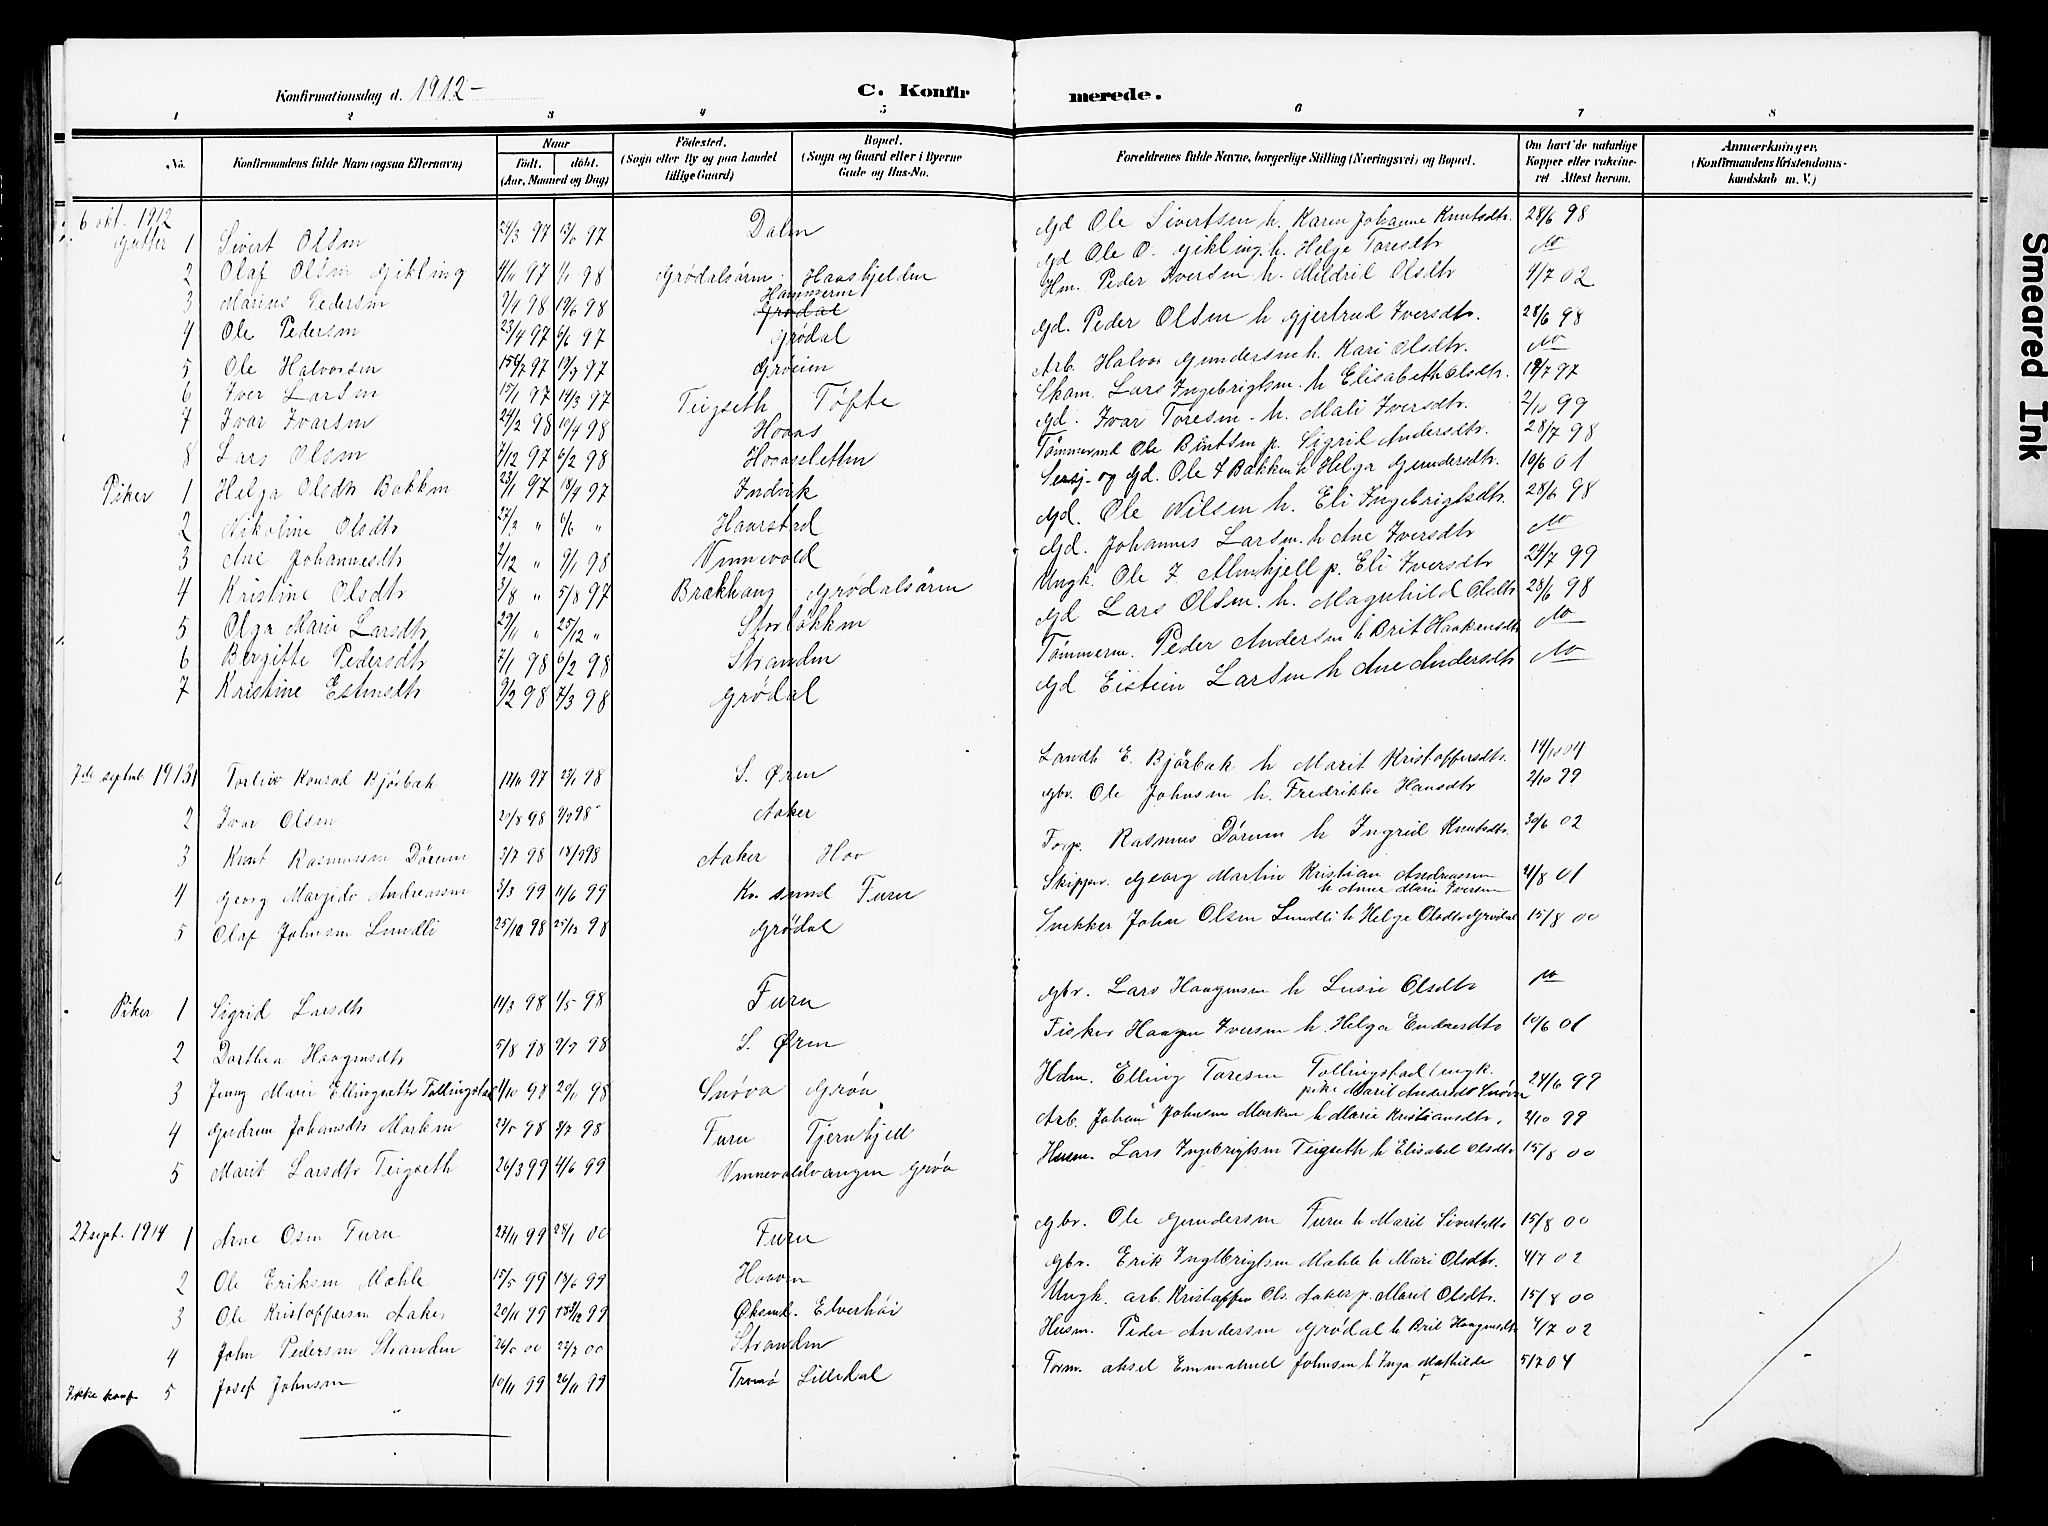 Konfirmationsdag d. 1912- C. Konfirmerede.
1 2 3 4 5 6 7 8
No. Konfirmandens fulde Navn (ogsaa Efternavn) Naar født. døbt. (Aar, Maaned og Dag) Fødested. (Sogn eller By og paa Landet tillige Gaard) Bopæl. (Sogn og Gaard eller i Byerne Gade og Hus-No. Forældrenes fulde Navne, borgerlige Stilling (Næringsvei) og Bopæl. Om havt de naturlige Kopper eller vakcineret Attest herom. Anmærkninger. (Konfirmandens Kristendomskundskab m. V.)
6 okt. 1912
Gutter 1 Sivert Olsen 24/3 97 97 Dalen Gd Ole Sivertsen h. Karen Johanne Knutsdtr. 28/6 98
2 Olaf Olsen Gikling 4/11 97 1/1 98 Grødalsøren Haaskjelden Gd Ole O. Gikling h. Helge Toresdtr
3 Marius Pedersen 2/1 98 19/6 98 Hammeren Grødal Hm. Peder Iversen h. Mildril Olsdtr 4/7 02
4 Ole Pedersen 23/4 97 6/6 97 Grødal Gd. Peder Olsen h Gjertrud Iversdtr. 28/6 98
5 Ole Halvorsen 97 97 Grøeim Arb. Halvor Gundersen h. Kari Olsdtr.
6 Iver Larsen 15/1 97 14/3 97 Teigseth Tøfte Skom. Lars Ingebrigtsen h Elisabeth Olsdtr. 97
7 Ivar Ivarsen 24/2 98 10/4 98 Hoaas Gd. Ivar Toresen h. Mali Iversdtr. 2/10 99
8 Lars Olsen 7/12 97 6/2 98 Hoaasletten Tømmermd Ole p. Sigrid Andersdtr. 28/7 98
Piker 1 Helga Olsdtr Bakken 23/1 97 18/4 97 Indvik Sersj- og Gd. Ole J Bakken h Helga Gundersdtr. 10/6 01
2 Nikoline Olsdtr 27/3 " 6/6 " Haarstad Gd. Ole Nilsen h. Eli Ingebrigtsdtr. 28/6 98
3 Ane Johannesdtr 2/12 " 9/1 98 Vinnevold Gd. Johannes Larsen h Ane Iversdtr
4 Kristine Olsdtr 3/8 " 5/8 97 Brækhaug Grødalsøren Ungk. Ole J Almskjell p. Eli Iversdtr 24/7 99
5 Olga Marie Larsdtr 29/11 " 25/12 " Storløkken Gd Lars Olsen h. Magnhild Olsdtr 28/6 98
6 Bergitte Pedersdtr 7/1 98 6/2 98 Stranden Tømmerm. Peder Andersen h Brit Haakensdtr
7 Kristine Estensdtr 9/2 98 7/3 98 Grødal Gd Eistein Larsen h Ane Andersdtr
7de septemb 1913 1 Torleiv Konrad Bjørbak 97 98 S. Øren Landh E. Bjørbak h Marit Kristoffersdtr. 14/10 04
2 Ivar Olsen 20/8 98 98 Aaker Gbr. Ole Johnsen h. Fredrikke Hansdtr 2/10 99
3 Knut Rasmussen Dørum 3/7 98 98 Aaker Hov Forp. Rasmus Dørum h Ingrid Knutsdtr. 30/6 02
4 Georg Margido Andreassen 3/3 99 11/6 99 Kr. sund Furu Skipper Georg Martin Kristian Andreassen h Anne Marie Iversen 2/8 01
5 Olaf Johnsen Lundli 25/10 98 25/12 98 Grødal Snekker John Olsen Lundli h Helge Olsdtr Grødal 15/8 00
Piker 1 Sigrid Larsdtr 14/3 98 1/5 98 Furu Gbr. Lars Haagensen h Lusie Olsdtr
2 Dorthea Haagensdtr 5/8 98 98 S. Øren Fisker Haagen Iversen h. Helga Endresdtr 10/6 01
3 Jenny Marie Ellingsdtr Tollingstad 98 98 Snøva Grøa Hdm. Elling Toresen Tollingstad (ungk. pike Marit Andersdtr Snøven 24/6 99
4 Gudrun Johansdtr Morken 98 98 Furu Tjernhjell Arb. Johan Johnsen Morken h Marie Kristiansdtr. 2/10 99
5 Marit Larsdtr Teigseth 26/3 99 4/6 99 Vinnevoldvangen Grøa Husm. Lars Ingebrigtsen Teigseth h Elisabet Olsdtr 15/8 00
27 sept. 1914 1 Arne Osen Furu 27/11 99 28/1 00 Furu Gbr. Ole Gundersen Furu h Marit Sivertsdtr 15/8 00
2 Ole Eriksen Mæhle 15/5 99 18/6 99 Hoaven Gbr. Erik Ingebrigtsen Mæhle h Mari Olsdtr. 4/7 02
3 Ole Kristoffersen Aaker 20/11 99 99 Øksend. Elverhøi Ungk. arb. Kristoffer Ols. Aaker p. Marit Olsdtr. 15/8 00
4 John Pedersen Stranden 00 00 Stranden Husm. Peder Andersen Grødal h Brit Haagensdtr 4/7 02
Ikke konf 5 Josef Johnsen 10/11 99 26/11 99 Tromsø Lilledal Form. Aksel Emmanuel Johnsen h Inga Mathilde 5/7 04
Smeared Ink